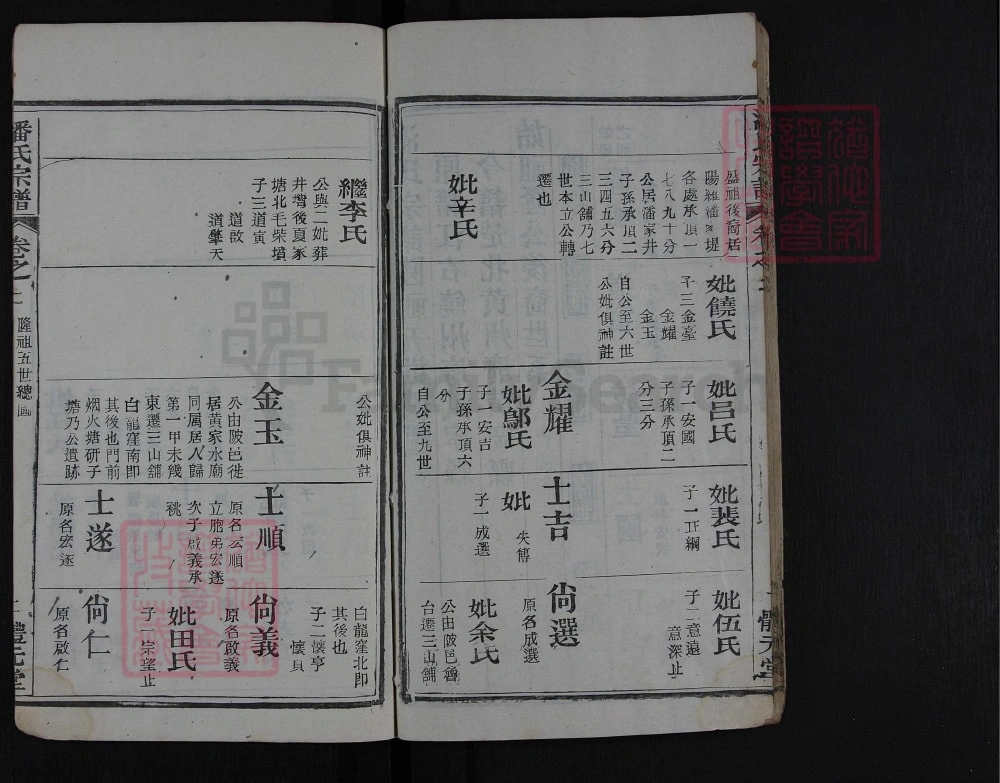 盛祖後裔居
陽羅潘家堤
各處承頂一
七八九十分
公居潘家井
子孫承頂二
三四五六分
三山舖乃七
世本立公轉
遷也
妣辛氏
妣饒氏
子三金臺
金耀
金玉
自公至六世
公妣俱神註
妣呂氏
子一安國
子孫承頂二
分三分
金耀
妣鄔氏
子一安吉
子孫承頂六
分
自公至九世
妣裴氏
子一正綱
士吉
妣失傳
子一成選
妣伍氏
子二意遠
意深止
尙選
原名成選
妣余氏
公由陂邑魯
台遷三山舖
體元堂
繼李氏
公與二妣葬
井塆後夏家
塘北毛柴墳
子三道寅
道啟
道肇夭
公妣俱神註
金玉
公由陂邑徙
居黃家水廟
同属居人歸
第一甲未幾
東遷三山舖
白龍窪南即
其後也門前
烟火塘研子
塔乃公遺跡
士順
原名宏順
立胞弟宏遂
次子啟義承
祧
士遂
原名宏遂
白龍窪北即
其後也
子二懷亨
懷貞
尙義
原名啟義
妣田氏
子一宗望止
尙仁
原名啟仁
潘氏宗譜
卷之二
隆祖五世總圖
體元堂